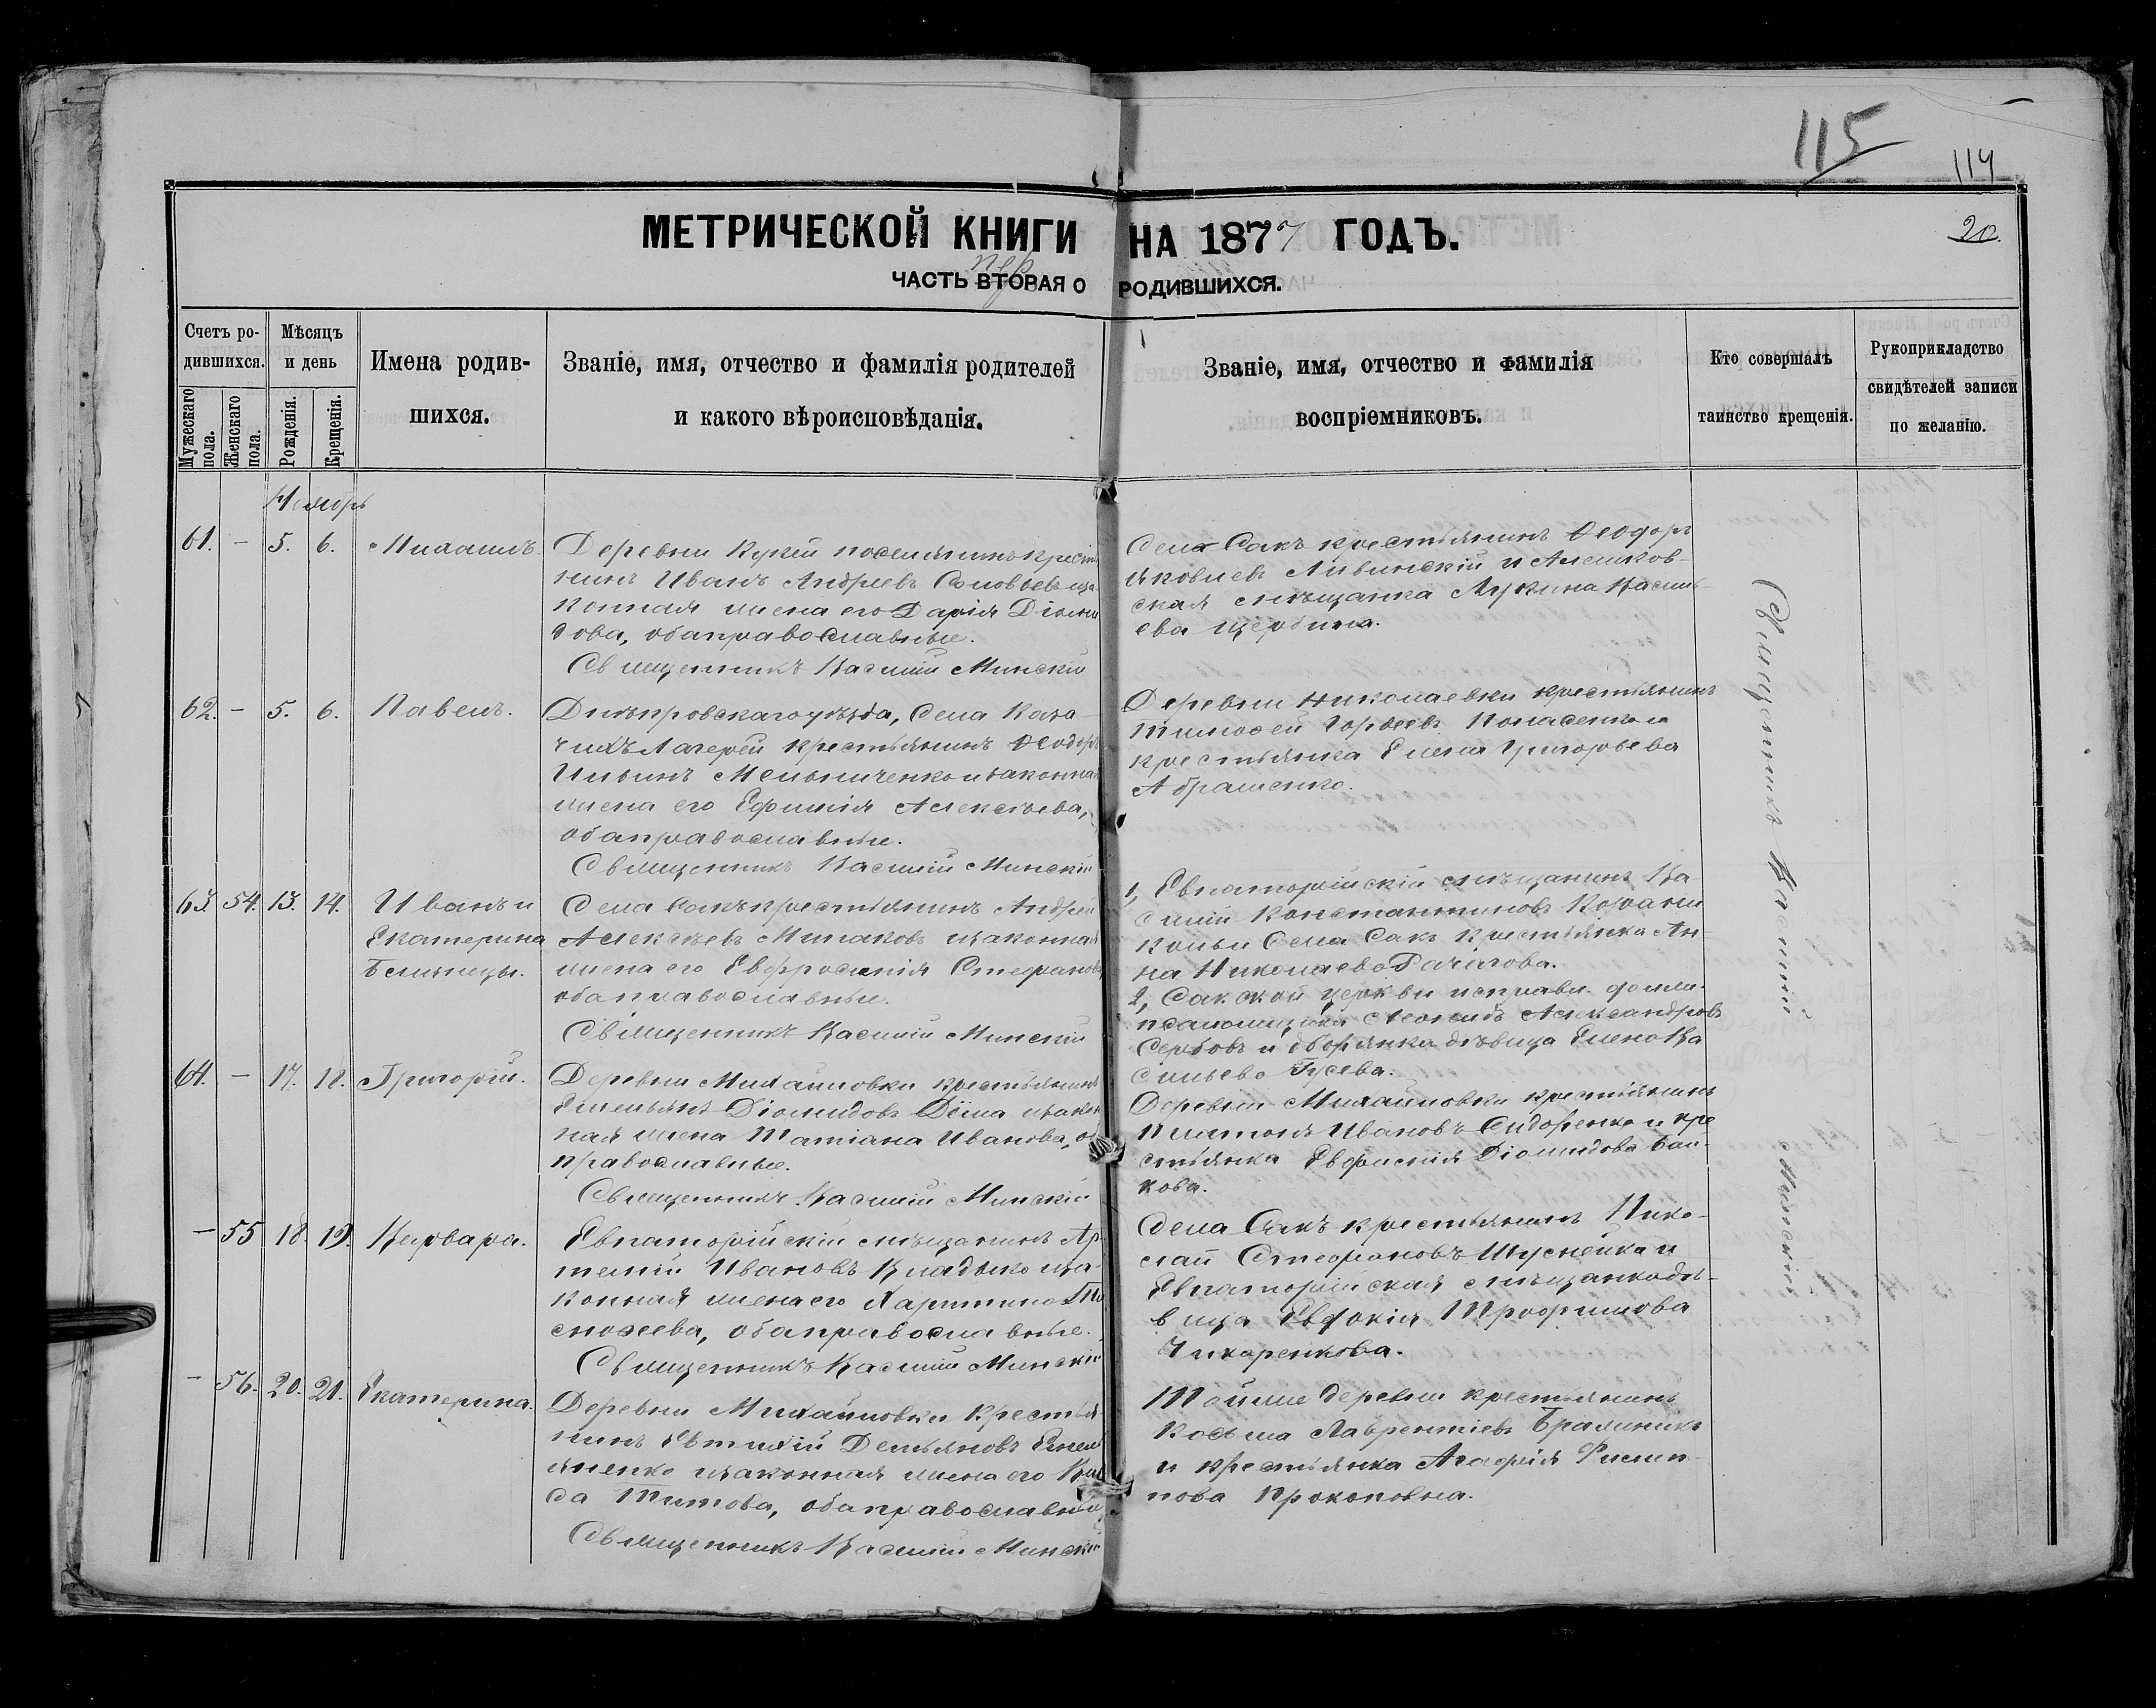 115
114
20.
МЕТРИЧЕСКОЙ КНИГИ НА 1877 ГОДЪ.
ЧАСТЬ ВТОРАЯ О РОДИВШИХСЯ.
Счетъ родившихся.
Мужескаго пола.
Женскаго пола.
Мѣсяцъ и день
Рожденія.
Крещенія.
Имена родив-
шихся.
Званіе, имя, отчество и фамилія родителей
и какого вѣроисповѣданія.
Званіе, имя, отчество и фамилія
воспріемниковъ.
Кто совершалъ
таинство крещенія.
Рукоприкладство
свидѣтелей записи
по желанію.
Ноябрь
61. – 5. 6. Михаилъ.
Деревни поселянинъ крестья
нинъ Иванъ Андреевъ Соловьевъ и за
конная жена его Дарія Діоми
дова, оба православные.
Священникъ Василій Минскій
Села Сакъ крестьянинъ Ѳеодоръ
Яковлевъ Ливинскій и Алешков-
ская мѣщанка Василь
ева Щербина.
62. – 5. 6. Павелъ.
Днѣпровскаго уѣзда, Села Каза-
чихъ Лагерей крестьянинъ Ѳеодоръ
Ильинъ Мельниченко и законная
жена его Ефимія Алексѣева,
оба православные.
Священникъ Василій Минскій
Деревни Николаевки крестьянинъ
Тимоѳей Гордеевъ и
крестьянка Елена Григорьева
Абраменко.
63. 54. 13. 14. Иванъ и
Екатерина
Близнецы.
Села Сакъ крестьянинъ Андрей
Алексѣевъ Минаковъ и законная
жена его Евфросинія Стефанова
оба православные.
Священникъ Василій Минскій
1, Евпаторійскій мѣщанинъ Ва
силій Константиновъ
Села Сакъ крестьянка Ан-
на Николаева
2, Сакской церкви исправл. долж.
псаломщика Леонидъ Александровъ
Сербовъ и дворянка дѣвица Елена Ва
сильева Гусева.
64. – 17. 18. Григорій.
Деревни Михайловки крестьянинъ
Емельянъ Діомидовъ и закон
ная жена Татіана Иванова, оба
православные.
Священникъ Василій Минскій
Деревни Михайловки крестьянинъ
Платонъ Ивановъ Сидоренко и кре
стьянка Евфимія Діомидова
кова.
– 55 18. 19. Варвара.
Евпаторійскій мѣщанинъ Ар
темій Ивановъ Владыко и за-
конная жена его Харитина Ти
моѳеева, оба православные.
Священникъ Василій Минскій
Села Сакъ крестьянинъ Нико-
лай Стефановъ и
Евпаторійская мѣщанка дѣ-
вица Евдокія Трофимова
Чихаренкова.
– 56. 20. 21. Екатерина.
Деревни Михайловки крестья
нинъ Евтихій Демьяновъ Емель
яненко и законная жена его
да Титова, оба православные,
Священникъ Василій Минскій
Той же деревни крестьянинъ
Косьма Лаврентіевъ
и крестьянка Агафія Филип-
пова Прокоповна.
Священникъ Василій Минскій